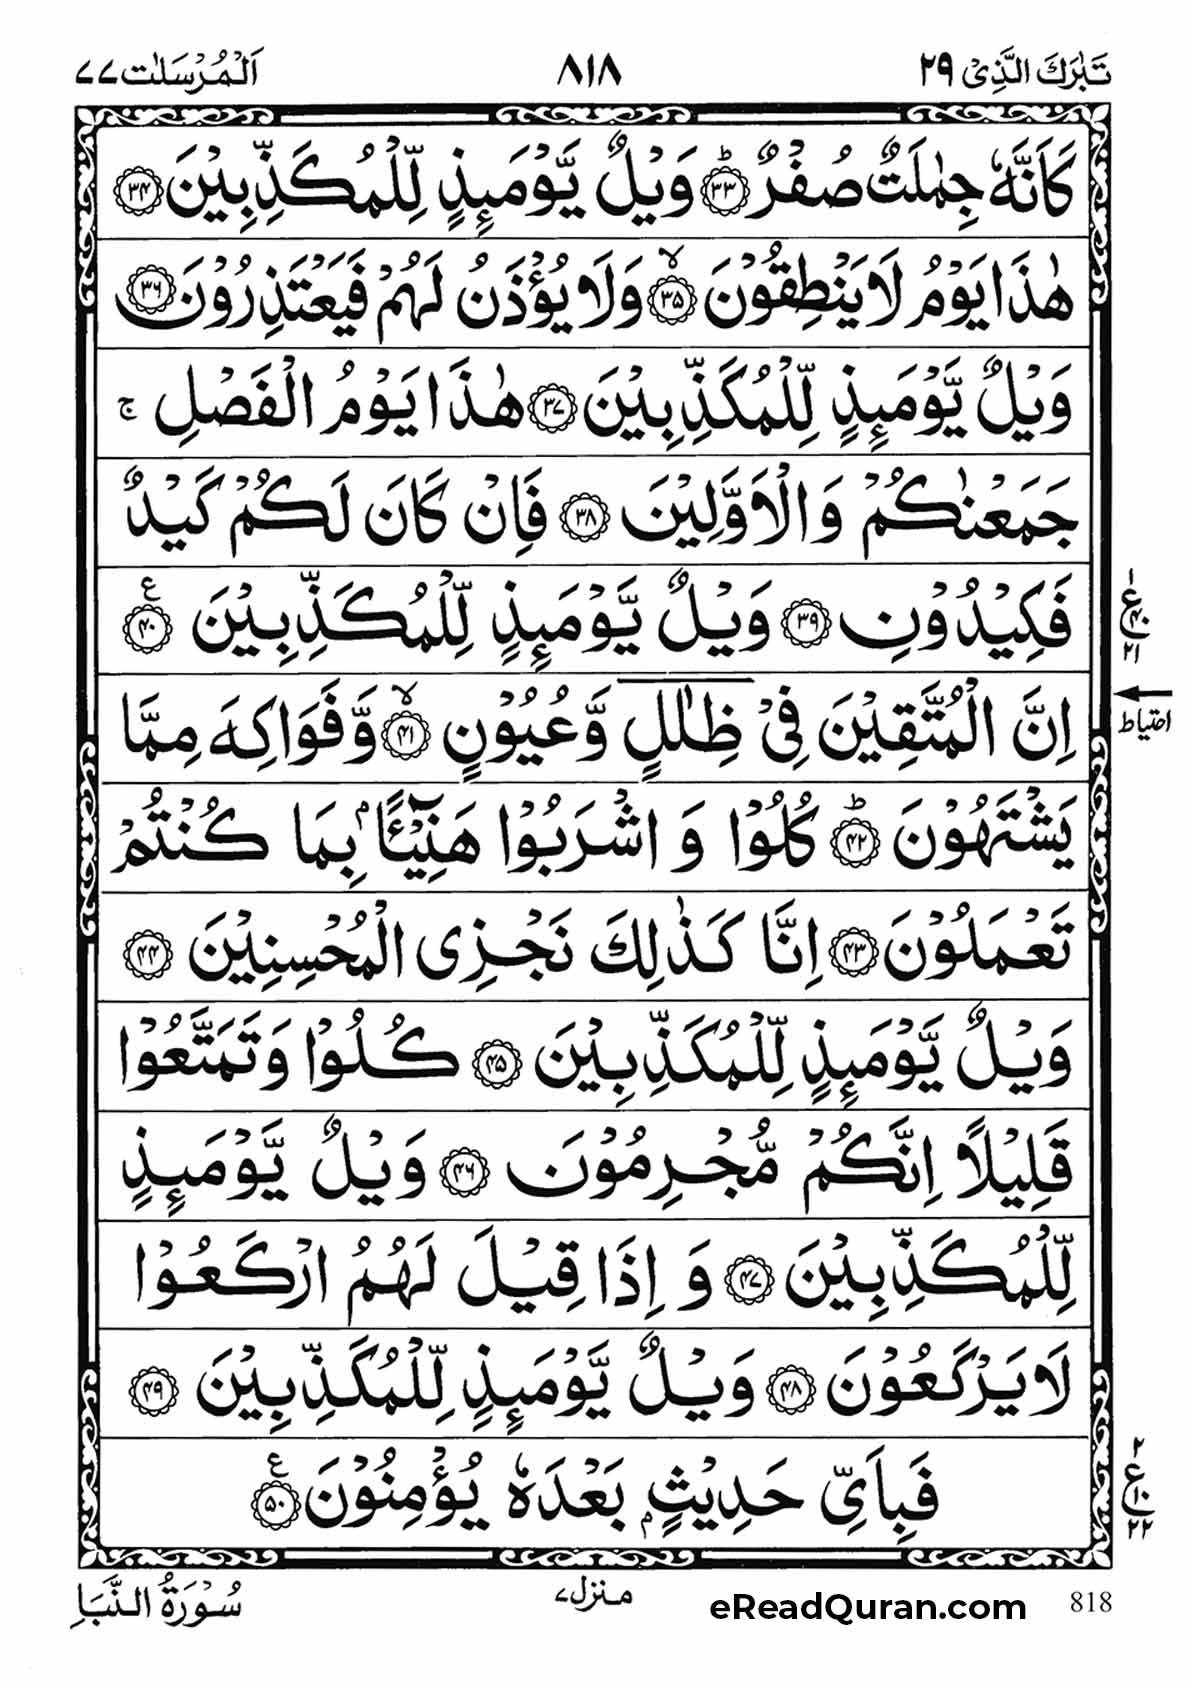 تَبٰرَكَ الَّذِىْ ٢٩
٨١٨
اَلْمُرْسَلٰت ٧٧
كَاَنَّهٗ جِمٰلَتٌ صُفْرٌ ؕ ۝٣٣ وَيْلٌ يَّوْمَئِذٍ لِّلْمُكَذِّبِيْنَ ۝٣٤
هٰذَا يَوْمُ لَا يَنْطِقُوْنَ ۙ ۝٣٥ وَلَا يُؤْذَنُ لَهُمْ فَيَعْتَذِرُوْنَ ۝٣٦
وَيْلٌ يَّوْمَئِذٍ لِّلْمُكَذِّبِيْنَ ۝٣٧ هٰذَا يَوْمُ الْفَصْلِ ۚ
جَمَعْنٰكُمْ وَالْاَوَّلِيْنَ ۝٣٨ فَاِنْ كَانَ لَكُمْ كَيْدٌ
فَكِيْدُوْنِ ۝٣٩ وَيْلٌ يَّوْمَئِذٍ لِّلْمُكَذِّبِيْنَ ۝٤٠ ع
اِنَّ الْمُتَّقِيْنَ فِىْ ظِلٰلٍ وَّعُيُوْنٍ ۙ ۝٤١ وَّفَوَاكِهَ مِمَّا
يَشْتَهُوْنَ ؕ ۝٤٢ كُلُوْا وَ اشْرَبُوْا هَنِيْٓـًٔۢا بِمَا كُنْتُمْ
تَعْمَلُوْنَ ۝٤٣ اِنَّا كَذٰلِكَ نَجْزِى الْمُحْسِنِيْنَ ۝٤٤
وَيْلٌ يَّوْمَئِذٍ لِّلْمُكَذِّبِيْنَ ۝٤٥ كُلُوْا وَتَمَتَّعُوْا
قَلِيْلًا اِنَّكُمْ مُّجْرِمُوْنَ ۝٤٦ وَيْلٌ يَّوْمَئِذٍ
لِّلْمُكَذِّبِيْنَ ۝٤٧ وَ اِذَا قِيْلَ لَهُمُ ارْكَعُوْا
لَا يَرْكَعُوْنَ ۝٤٨ وَيْلٌ يَّوْمَئِذٍ لِّلْمُكَذِّبِيْنَ ۝٤٩
فَبِاَىِّ حَدِيْثٍۢ بَعْدَهٗ يُؤْمِنُوْنَ ۝٥٠ ع
١
ع
٤٠
٢١
احتیاط
٢
ع
١٠
٢٢
سُوْرَةُ النَّبَاِ
منزل ٧
eReadQuran.com
818